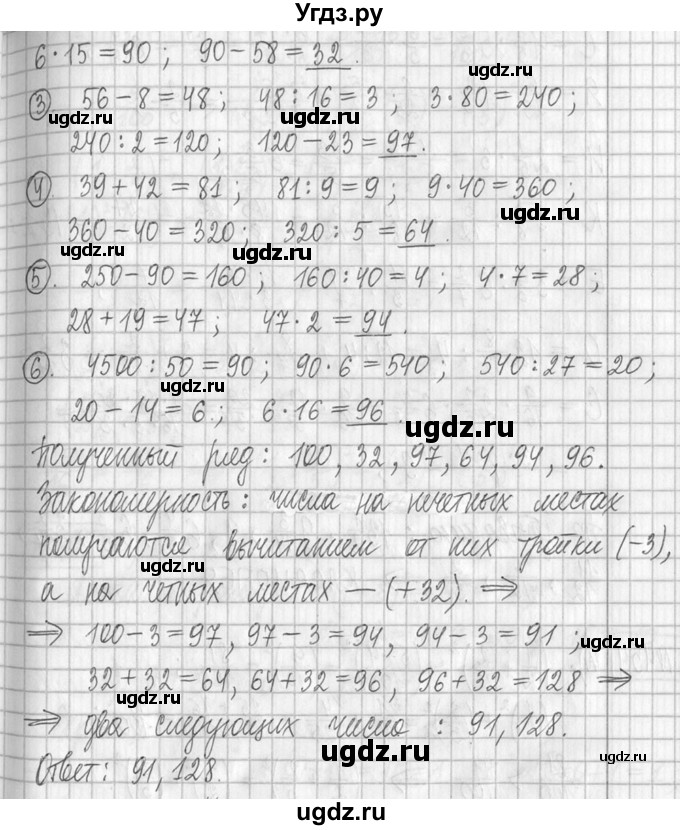 Угдз.ру
6·15=90; 90-58=32.
ugdz.ru
③. 56-8=48; 48:16=3; 3·80=240;
ugdz.ru ugdz.ru
240:2=120; 120-23=97.
④. 39+42=81; 81:9=9; 9·40=360;
ugdz.ru
360-40=320; 320:5=64.
ugdz.ru ugdz.ru
⑤. 250-90=160; 160:40=4; 4·7=28;
28+19=47; 47·2=94.
ugdz.ru
⑥. 4500:50=90; 90·6=540; 540:27=20;
ugdz.ru
20-14=6; 6·16=96.
ugdz.ru
Полученный ряд: 100, 32, 97, 64, 94, 96.
Закономерность: числа на нечетных местах
получаются вычитанием от них тройки (-3),
ugdz.ru
а на четных местах — (+32). ⇒
⇒ 100-3=97, 97-3=94, 94-3=91;
ugdz.ru
32+32=64, 64+32=96, 96+32=128 ⇒
ugdz.ru
⇒ два следующих числа: 91, 128.
ugdz.ru ugdz.ru
Ответ: 91, 128.
ugdz.ru
ugdz.ru